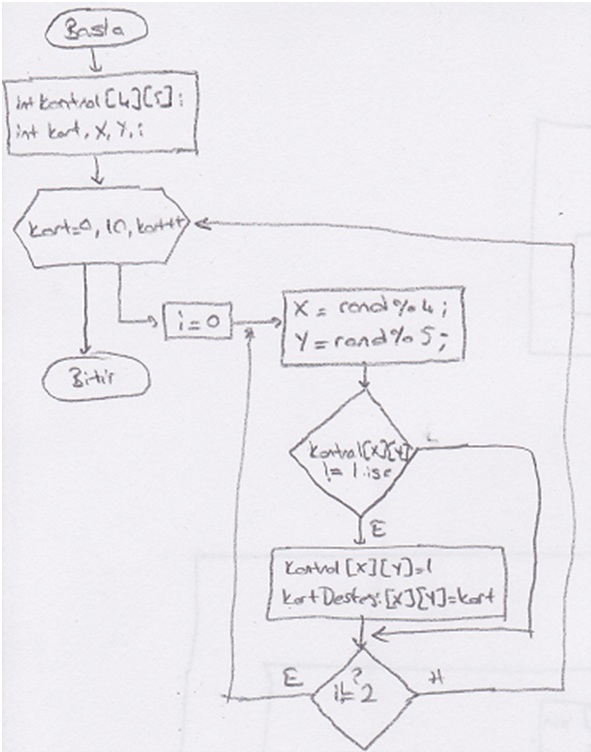 Basla
int kontrol[4][5];
int kart, X, Y, i
kart=0, 10, kart++
i=0
X = rand%4;
Y = rand%5;
kontrol[X][Y]
!= 1 ise
E
Kontrol[X][Y]=1
kartDestesi[X][Y]=kart
?
i!=2
E
H
Bitir